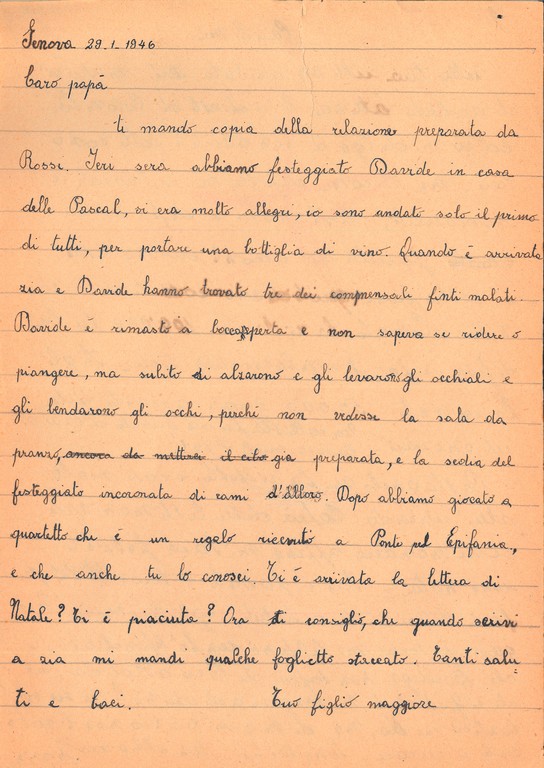 Genova 29.1.1946
Caro papà
ti mando copia della relazione preparata da
Rosse. Ieri sera abbiamo festeggiato Davide in casa
delle Pascal, si era molto allegri, io sono andato solo il primo
di tutti, per portare una bottiglia di vino. Quando è arrivata
zia e Davide hanno trovato tre dei compensali finti malati.
Davide è rimasto a bocca aperta e non sapeva se ridere o
piangere, ma subito si alzarono e gli levarono gli occhiali e
gli bendarono gli occhi, perché non vedesse la sala da
pranzo, ancora da mettersi il cibo già preparata, e la sedia del
festeggiato incoronata di rami d'alloro. Dopo abbiamo giocato a
quartetto che è un regalo ricevuto a Ponte pel Epifania,
e che anche tu lo conosci. Ti è arrivata la lettera di
Natale? Ti è piaciuta? Ora ti consiglio, che quando scrivi
a zia mi mandi qualche foglietto staccato. Tanti salu-
ti e baci. Tuo figlio maggiore